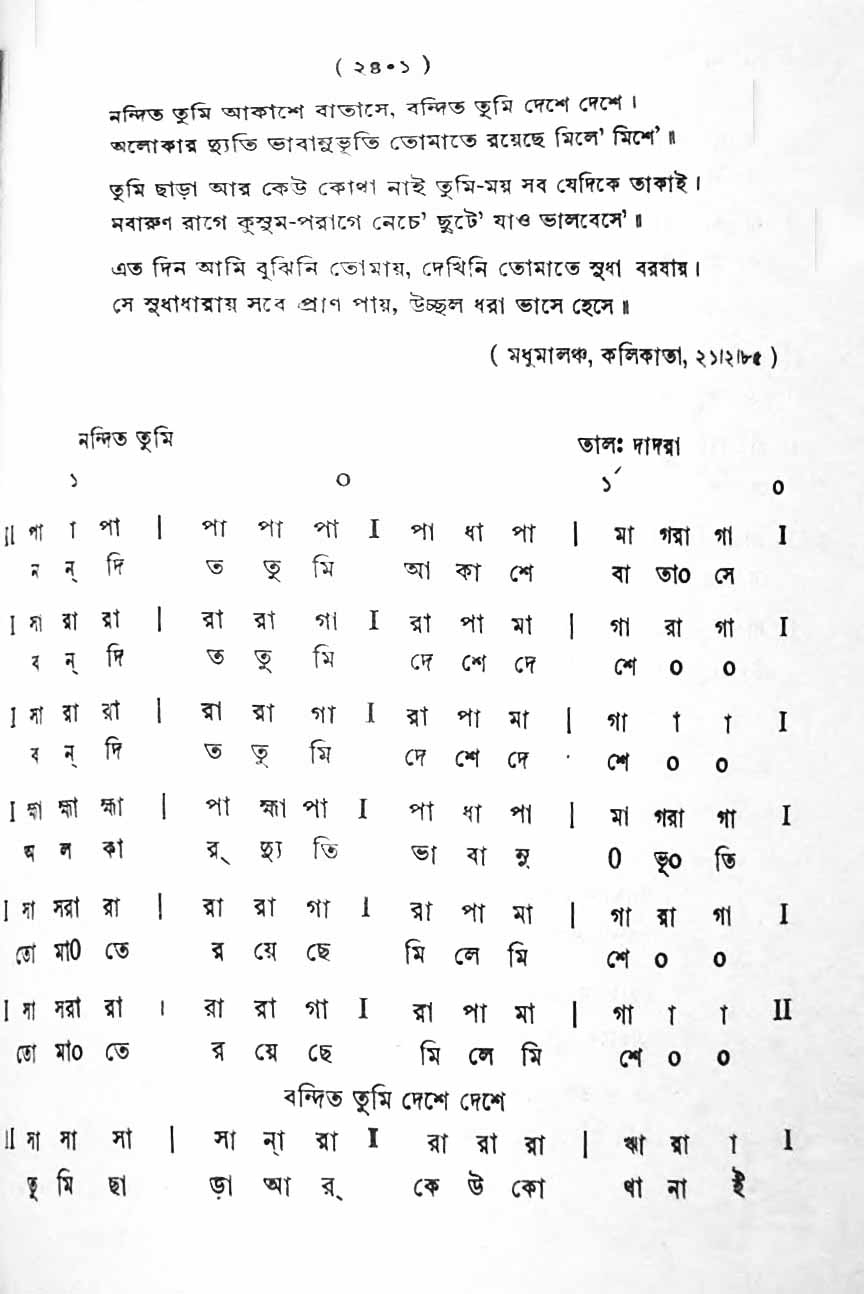 ( ২৪০১ )
নন্দিত তুমি আকাশে বাতাসে, বন্দিত তুমি দেশে দেশে ।
অলোকার দ্যুতি ভাবানুভূতি তোমাতে রয়েছে মিলে’ মিশে’ ॥
তুমি ছাড়া আর কেউ কোথা নাই তুমি-ময় সব যেদিকে তাকাই ।
নবারুণ রাগে কুসুম-পরাগে নেচে’ ছুটে’ যাও ভালবেসে’ ॥
এত দিন আমি বুঝিনি তোমায়, দেখিনি তোমাতে সুধা বরষায় ।
সে সুধাধারায় সবে প্রাণ পায়, উচ্ছল ধরা ভাসে হেসে ॥
( মধুমালঞ্চ, কলিকাতা, ২১।২।৮৫ )
নন্দিত তুমি তালঃ দাদরা
১ ০ ১´ ০
II পা া পা | পা পা পা I পা ধা পা | মা গরা গা I
ন ন্ দি ত তু মি আ কা শে বা তা০ সে
I সা রা রা | রা রা গা I রা পা মা | গা রা গা I
ব ন্ দি ত তু মি দে শে দে শে ০ ০
I সা রা রা | রা রা গা I রা পা মা | গা া া I
ব ন্ দি ত তু মি দে শে দে শে ০ ০
I হ্মা হ্মা হ্মা | পা হ্মা পা I পা ধা পা | মা গরা গা I
অ ল কা র্ দ্যু তি ভা বা নু ০ ভূ০ তি
I সা সরা রা | রা রা গা I রা পা মা | গা রা গা I
তো মা০ তে র য়ে ছে মি লে মি শে ০ ০
I সা সরা রা । রা রা গা I রা পা মা | গা া া II
তো মা০ তে র য়ে ছে মি লে মি শে ০ ০
বন্দিত তুমি দেশে দেশে
II সা সা সা | সা ন্া রা I রা রা রা | ঋা রা া I
তু মি ছা ড়া আ র্ কে উ কো থা না ই